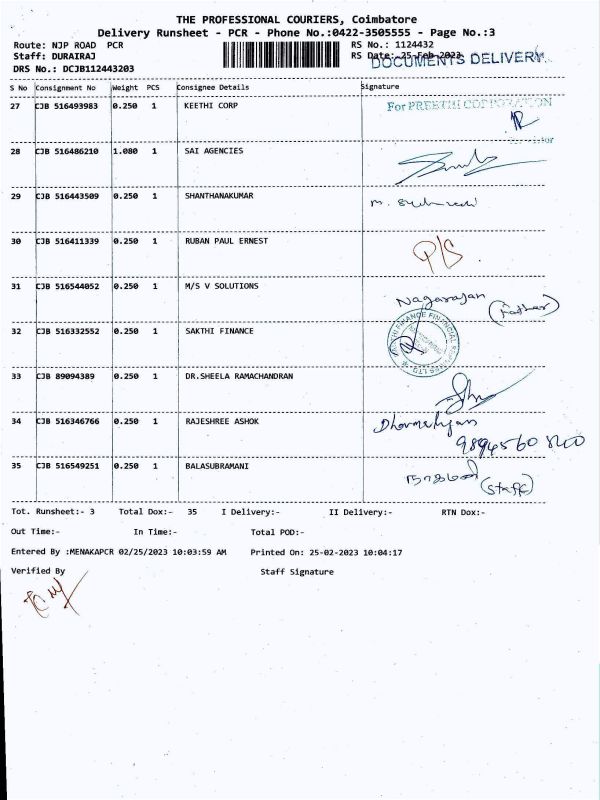 THE PROFESSIONAL COURIERS, Coimbatore
Delivery Runsheet - PCR - Phone No.:0422-3505555 - Page No.:3
Route: NJP ROAD PCR
RS No.: 1124432
Staff: DURAIRAJ
RS Date: 25-Feb-2023
DOCUMENTS DELIVERY
DRS No.: DCJB112443203
S No Consignment No Weight PCS Consignee Details Signature
27 CJB 516493983 0.250 1 KEETHI CORP
For PREETHI CORPORATION
28 CJB 516486210 1.080 1 SAI AGENCIES
29 CJB 516443509 0.250 1 SHANTHANAKUMAR
30 CJB 516411339 0.250 1 RUBAN PAUL ERNEST
P/S
31 CJB 516544052 0.250 1 M/S V SOLUTIONS
Nagarajan
(Father)
32 CJB 516332552 0.250 1 SAKTHI FINANCE
33 CJB 89094389 0.250 1 DR.SHEELA RAMACHANDRAN
34 CJB 516346766 0.250 1 RAJESHREE ASHOK
35 CJB 516549251 0.250 1 BALASUBRAMANI
(Staff)
Tot. Runsheet:- 3 Total Dox:- 35 I Delivery:- II Delivery:- RTN Dox:-
Out Time:- In Time:- Total POD:-
Entered By :MENAKAPCR 02/25/2023 10:03:59 AM Printed On: 25-02-2023 10:04:17
Verified By Staff Signature